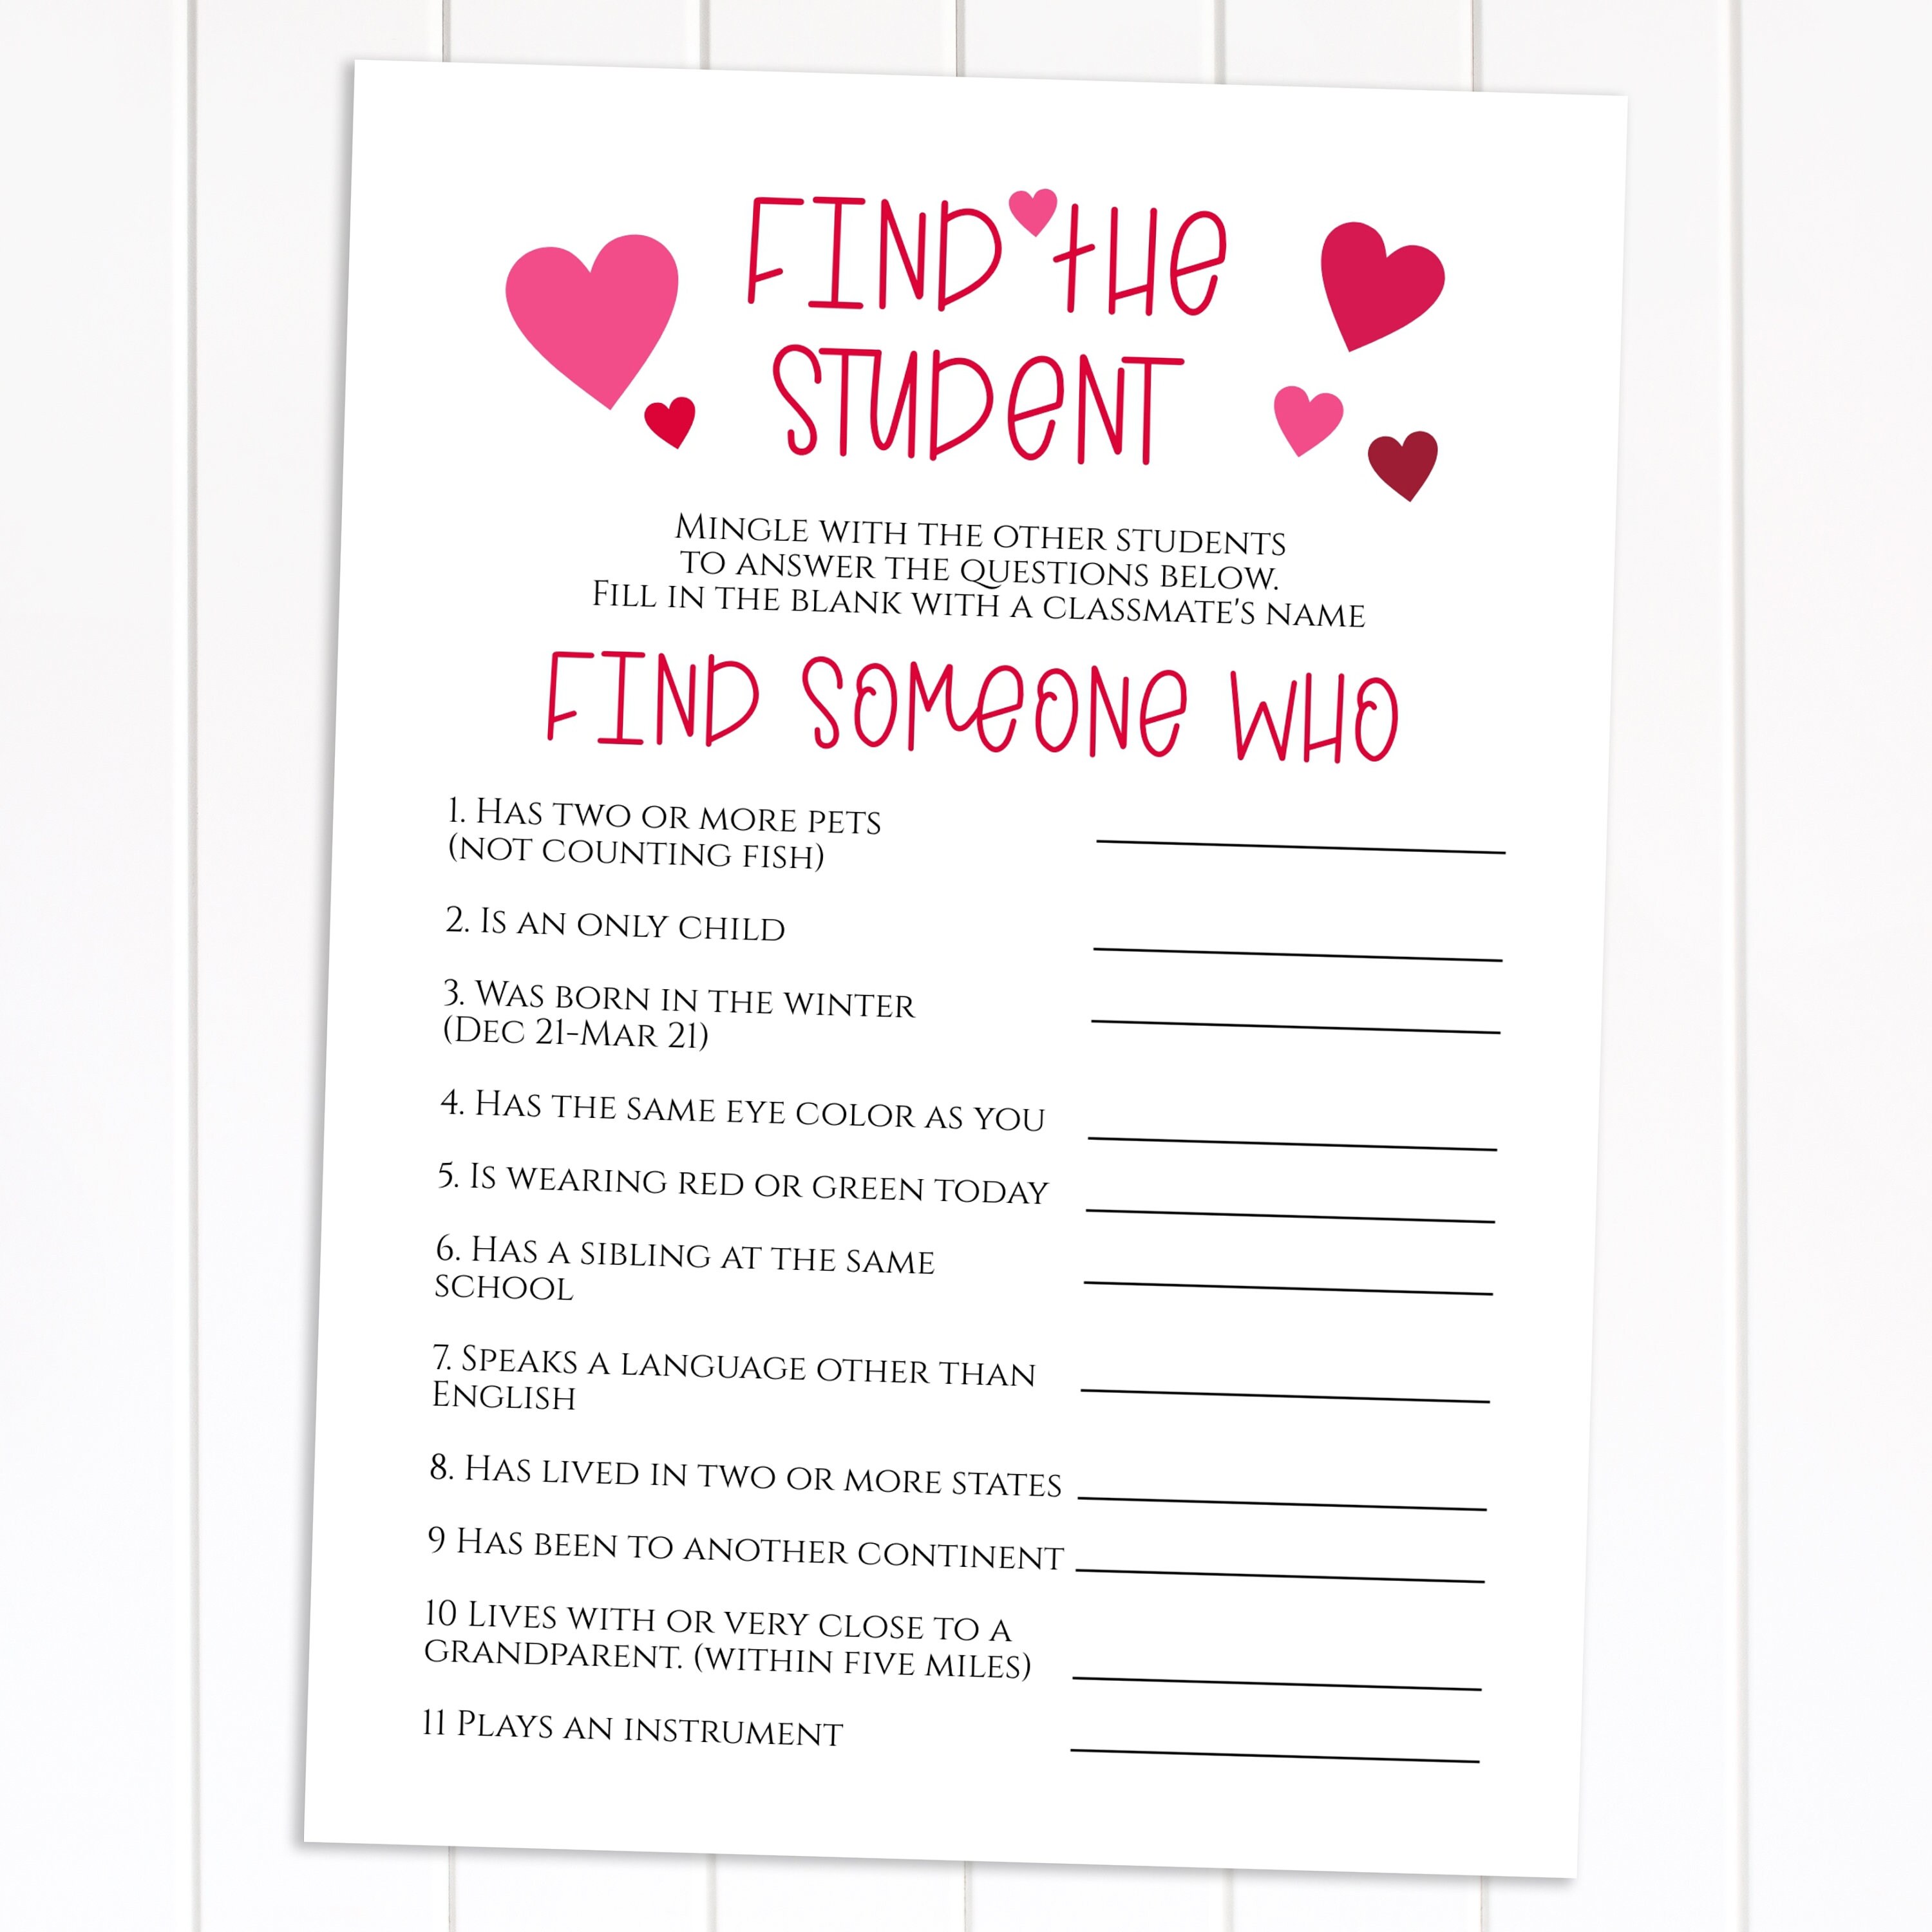 FIND THE
STUDENT
MINGLE WITH THE OTHER STUDENTS
TO ANSWER THE QUESTIONS BELOW.
FILL IN THE BLANK WITH A CLASSMATE'S NAME
FIND SOMEONE WHO
1. HAS TWO OR MORE PETS
(NOT COUNTING FISH)
2. IS AN ONLY CHILD
3. WAS BORN IN THE WINTER
(DEC 21-MAR 21)
4. HAS THE SAME EYE COLOR AS YOU
5. IS WEARING RED OR GREEN TODAY
6. HAS A SIBLING AT THE SAME
SCHOOL
7. SPEAKS A LANGUAGE OTHER THAN
ENGLISH
8. HAS LIVED IN TWO OR MORE STATES
9 HAS BEEN TO ANOTHER CONTINENT
10 LIVES WITH OR VERY CLOSE TO A
GRANDPARENT. (WITHIN FIVE MILES)
11 PLAYS AN INSTRUMENT